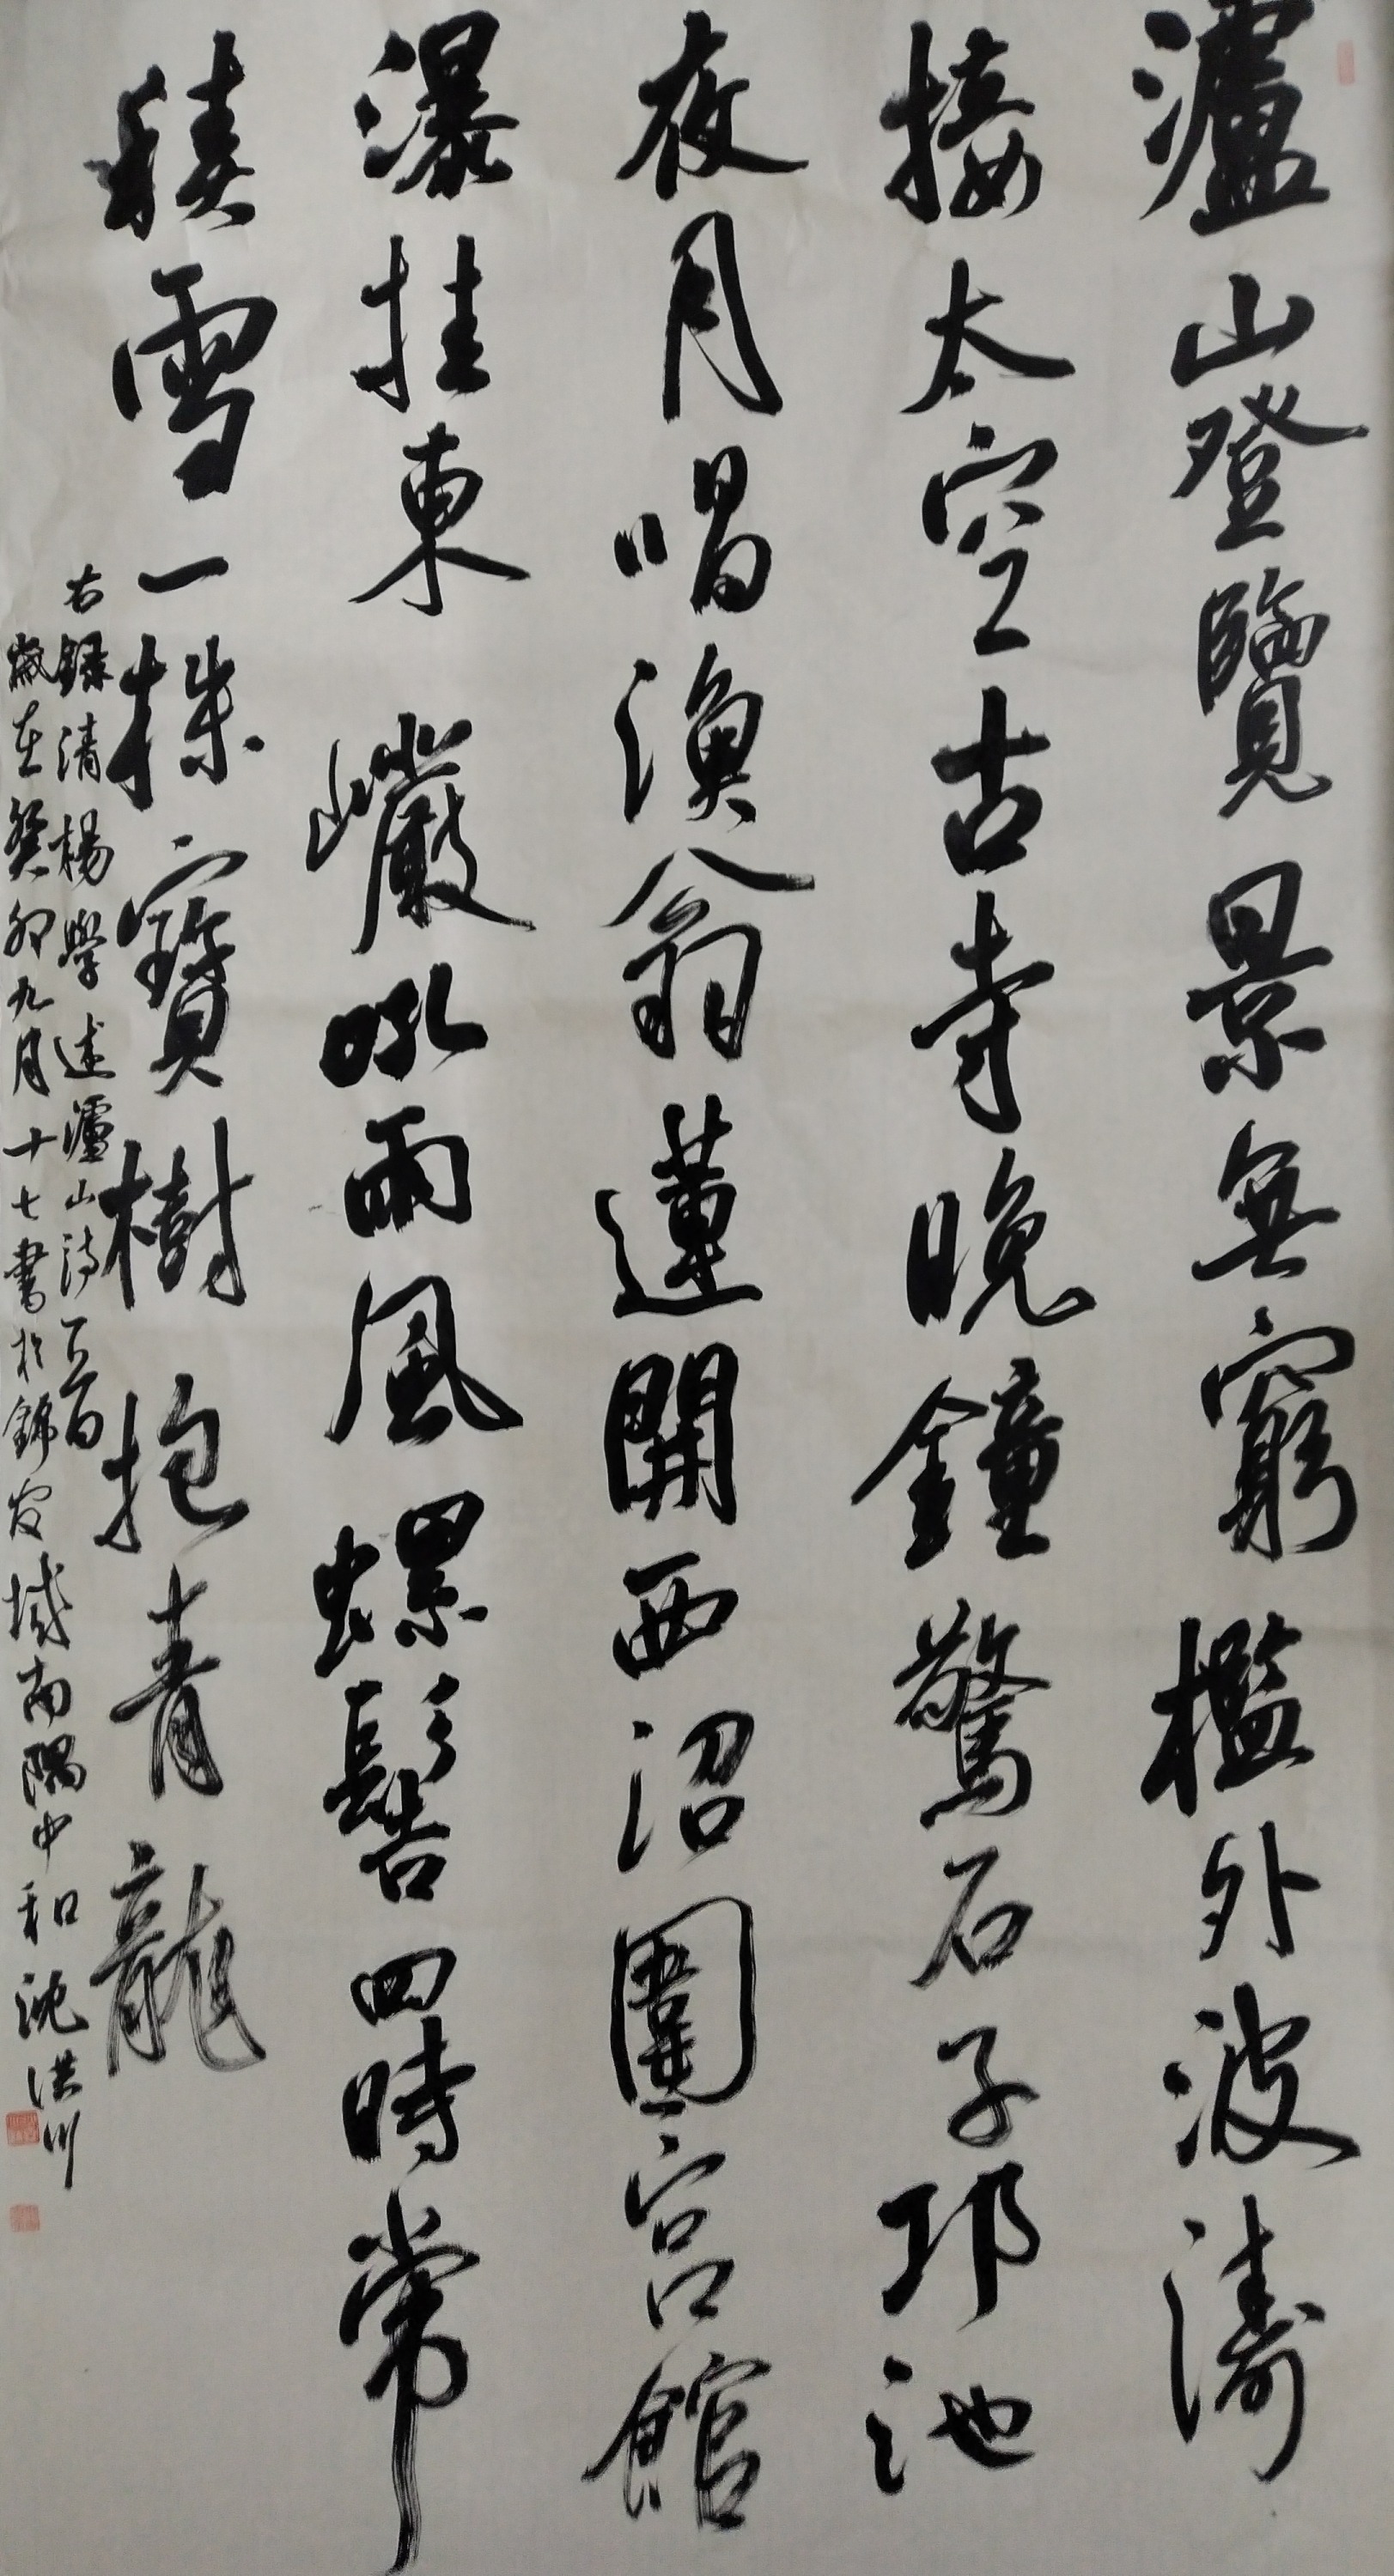 瀘山登覽景無窮檻外波濤
接太空古寺晚鐘驚石子邛池
夜月唱漁翁蓮開西沼圍宮館
瀑挂東巖吼雨風螺髻四時常
積雪一株寶樹抱青龍
右錄清楊學述瀘山詩一首
歲在癸卯九月十七書於錦官城南隅中和沈洪川